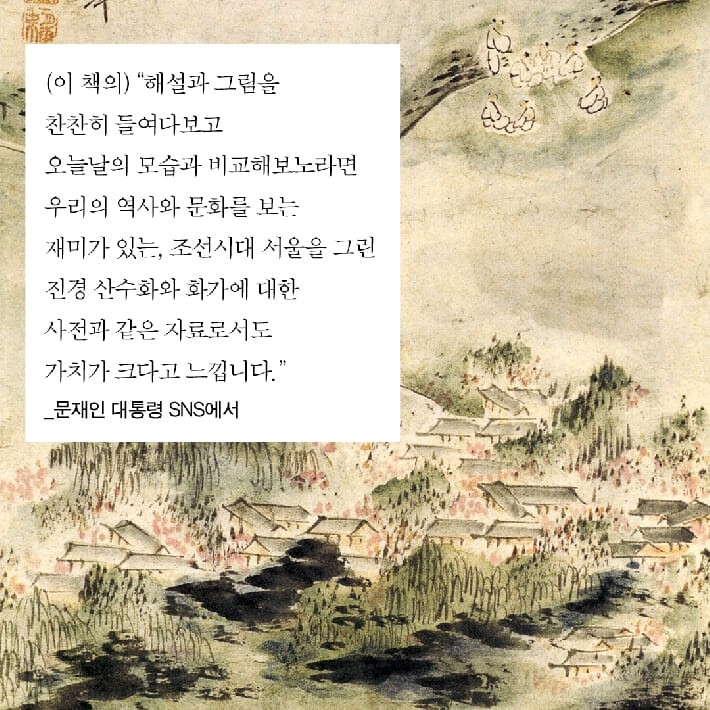 (이 책의) “해설과 그림을
찬찬히 들여다보고
오늘날의 모습과 비교해보노라면
우리의 역사와 문화를 보는
재미가 있는, 조선시대 서울을 그린
진경 산수화와 화가에 대한
사전과 같은 자료로서도
가치가 크다고 느낍니다.”
_문재인 대통령 SNS에서